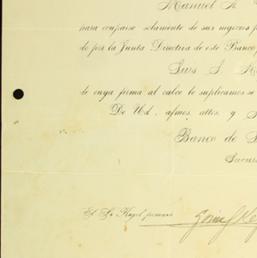 Manuel A.
para ocuparse solamente de sus negocios p
do por la Junta Directiva de este Banco,
Luis S. M
de cuya firma al calce le suplicamos se
De Ud., afmos. attos. y S
Banco de
Sucurs
El Sr. Kagel firmará